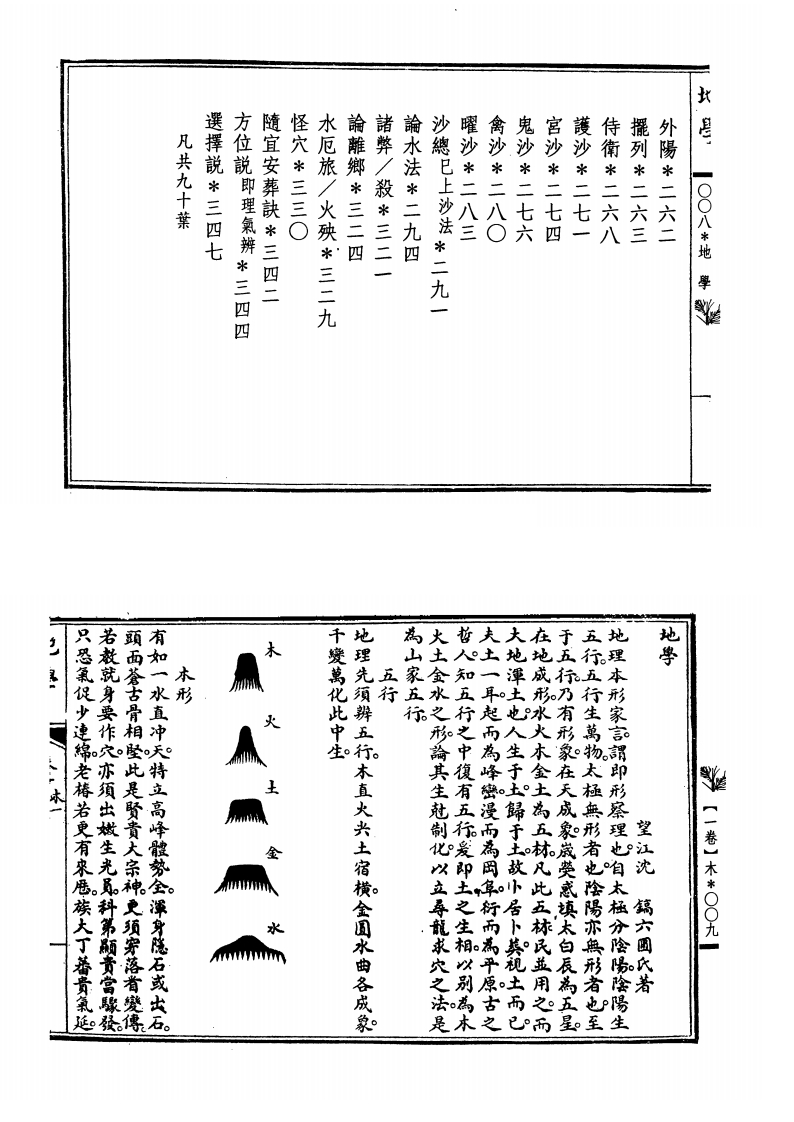 地學
〇〇八＊地　學
外陽＊二六二
擺列＊二六三
侍衛＊二六八
護沙＊二七一
宮沙＊二七四
鬼沙＊二七六
禽沙＊二八〇
曜沙＊二八三
沙總巳上沙法＊二九一
論水法＊二九四
諸弊／殺＊三二一
論離鄉＊三二四
水厄旅／火殃＊三二九
怪穴＊三三〇
隨宜安葬訣＊三四二
方位説即理氣辨＊三四四
選擇説＊三四七
凡共九十葉
【一卷】木＊〇〇九
地學
望江沈　鎬六圃氏著
地理本形家言。謂即形察理也。自太極分陰陽。陰陽生
五行。五行生萬物。太極無形者也。陰陽亦無形者也。至
于五行。乃有形象。在天成象。歲熒惑填太白辰為五星。
在地成形。水火木金土為五材。凡此五材。民並用之。而
大地渾土也。人生于土。歸于土。故卜居卜葬。視土而已。
夫土一耳。起而為峰巒。漫而為岡阜。衍而為平原。古之
哲人。知五行之中復有五行。爰即土之生相。以別為木
火土金水之形。論其生尅制化。以立尋龍求穴之法。是
為山家五行。
五行
地理先須辨五行。木直火尖土宿橫。金圓水曲各成象。
千變萬化此中生。
木
火
土
金
水
木形
有如一水直冲天。特立高峰體勢全。渾身隱石或出石。
頭面蒼古骨相堅。此是賢貴大宗神。更須穿落看變傳。
若教就身要作穴。亦須出嫩生光員。科第顯貴當驟發。
只恐氣促少連綿。老椿若更有來歷。族大丁蕃貴氣延。